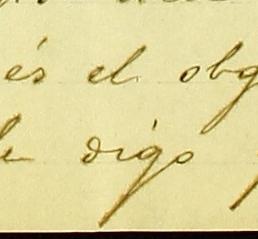 és el obg
le digo